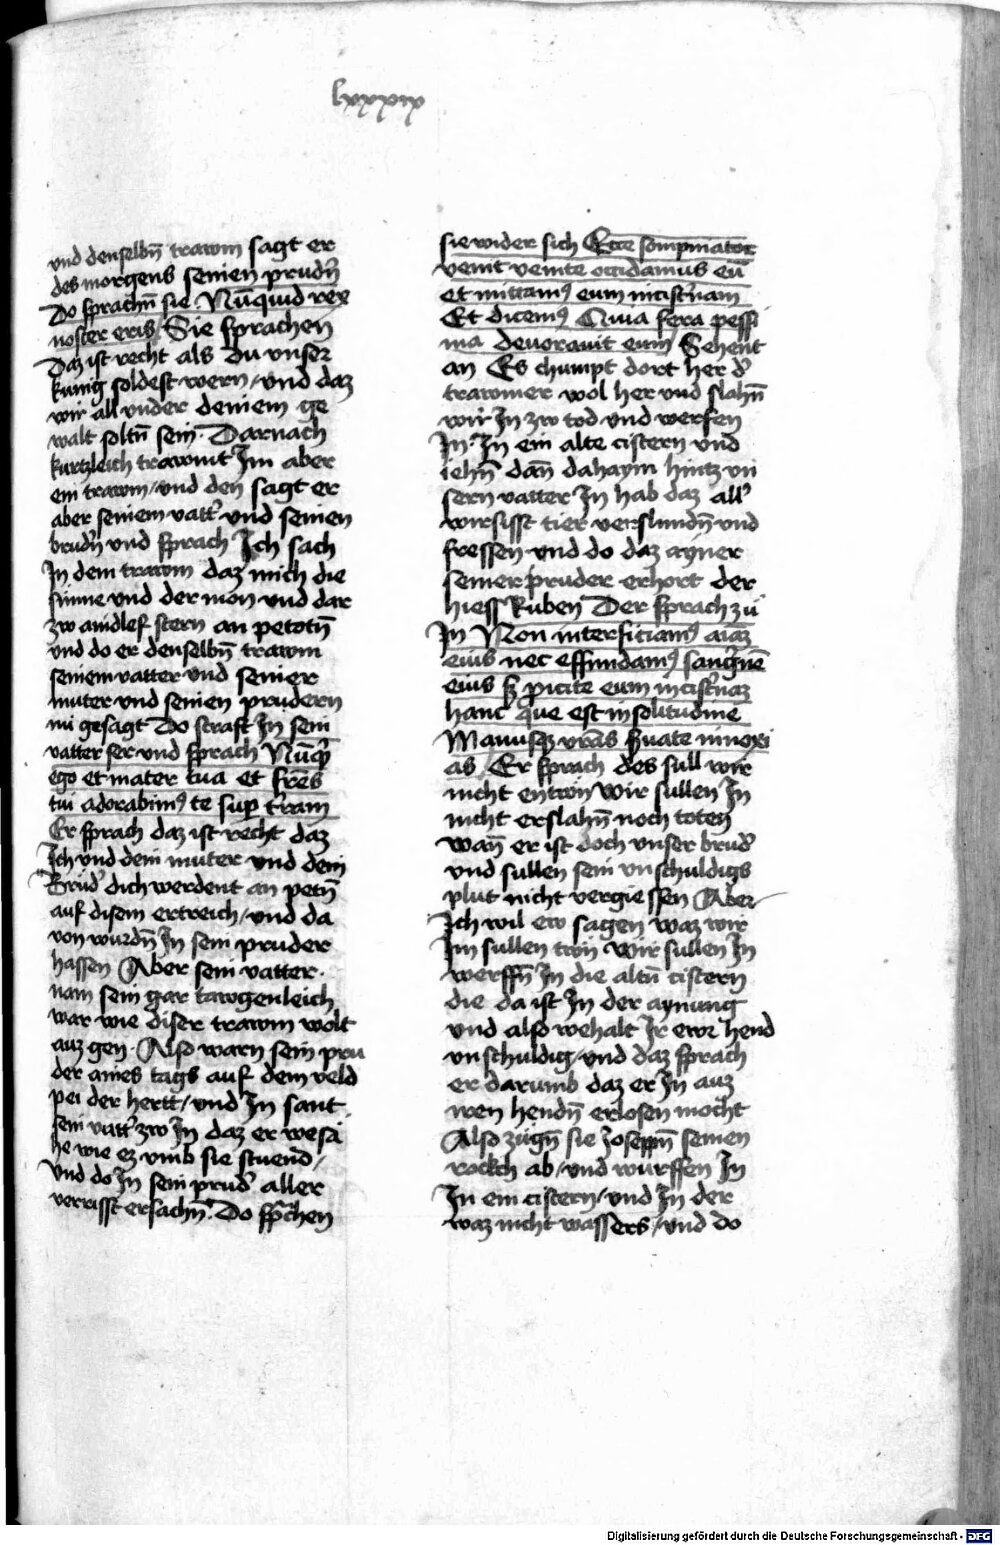 lxxxix
vnd denselbñ trawm sagt er
des morgens seinen prudñ
Do sprachñ sie Nũquid rex
noster eris Sie sprachen
Daz ist recht als du vnser
kunig soldest wern / vnd daz
wir all vnder deinem ge
walt soltñ sein · Darnach
kurtzleich trawmt Im aber
ein trawm / vnd den sagt er
aber seinem vatt' vnd seinen
brudñ vnd sprach Ich sach
In dem trawm daz mich die
sunne vnd der mon vnd dar
zw aindlef stern an petotñ
vnd do er denselbñ trawm
seinem vatter vnd seiner
muter vnd seinen prudern
gesagt Do straft In sein
vatter ser vnd sprach Nũqd
ego et mater tua et fres
tui adorabim9 te sup tram
Er sprach daz ist recht daz
Ich vnd dein muter vnd dein
Brud' dich werdent an petñ
auf disem ertreich / vnd da
von wurdñ In sein pruder
hassen Aber sein vatter ·
nam sein gar tawgenleich
war wie diser trawm wolt
auz gen · Also warn sein pru
der aines tags auf dem veld
pei der hertt / vnd In sant
sein vatt' zw In daz er wesa
he wie ez vmb sie stuend /
Vnd do In sein prud' aller
verrisst ersachñ · Do sprachen
sie wider sich Ecce sompniator
venit venite occidamus eũ
et mittam9 eum in cist'nam
Et dicem9 Quia fera pessi
ma deuorauit eum Sehent
an Es chumpt dort her d'
trawmer wol her vnd slahñ
wir In zw tod vnd werfen
In · In ein alte cistern vnd
iehñ dañ dahaym hintz vn
sern vatter In hab daz all'
wirsisst tier verslundñ vnd
fressen vnd do daz ayner
seiner pruder erhort der
hiess Ruben Der sprach zu
In Non interficiam9 aiaz
eius nec effundam9 sanguinẽ
eius sz proicite eum in cist'naz
hanc que est in solitudine
Manusqz vras suate innoxi
as Er sprach des sull wir
nicht entwn wir sullen In
nicht erslahñ noch toten
wañ er ist doch vnser brud'
vnd sullen sein vnschuldigs
plut nicht vergiessen Aber
Ich wil ew sagen waz wir
Im sullen twn wir sullen In
werffñ In die altñ cistern
die da ist In der aynung
vnd also wehalt Ir ewr hend
vnschuldig / vnd daz sprach
er darumb daz er In auz
iren hendñ erlosen mocht
Also zugñ sie Josepñ seinen
rockch ab / vnd wurffen In
In ein cistern / vnd In der
waz nicht wassers / vnd do
Digitalisierung gefördert durch die Deutsche Forschungsgemeinschaft - DFG